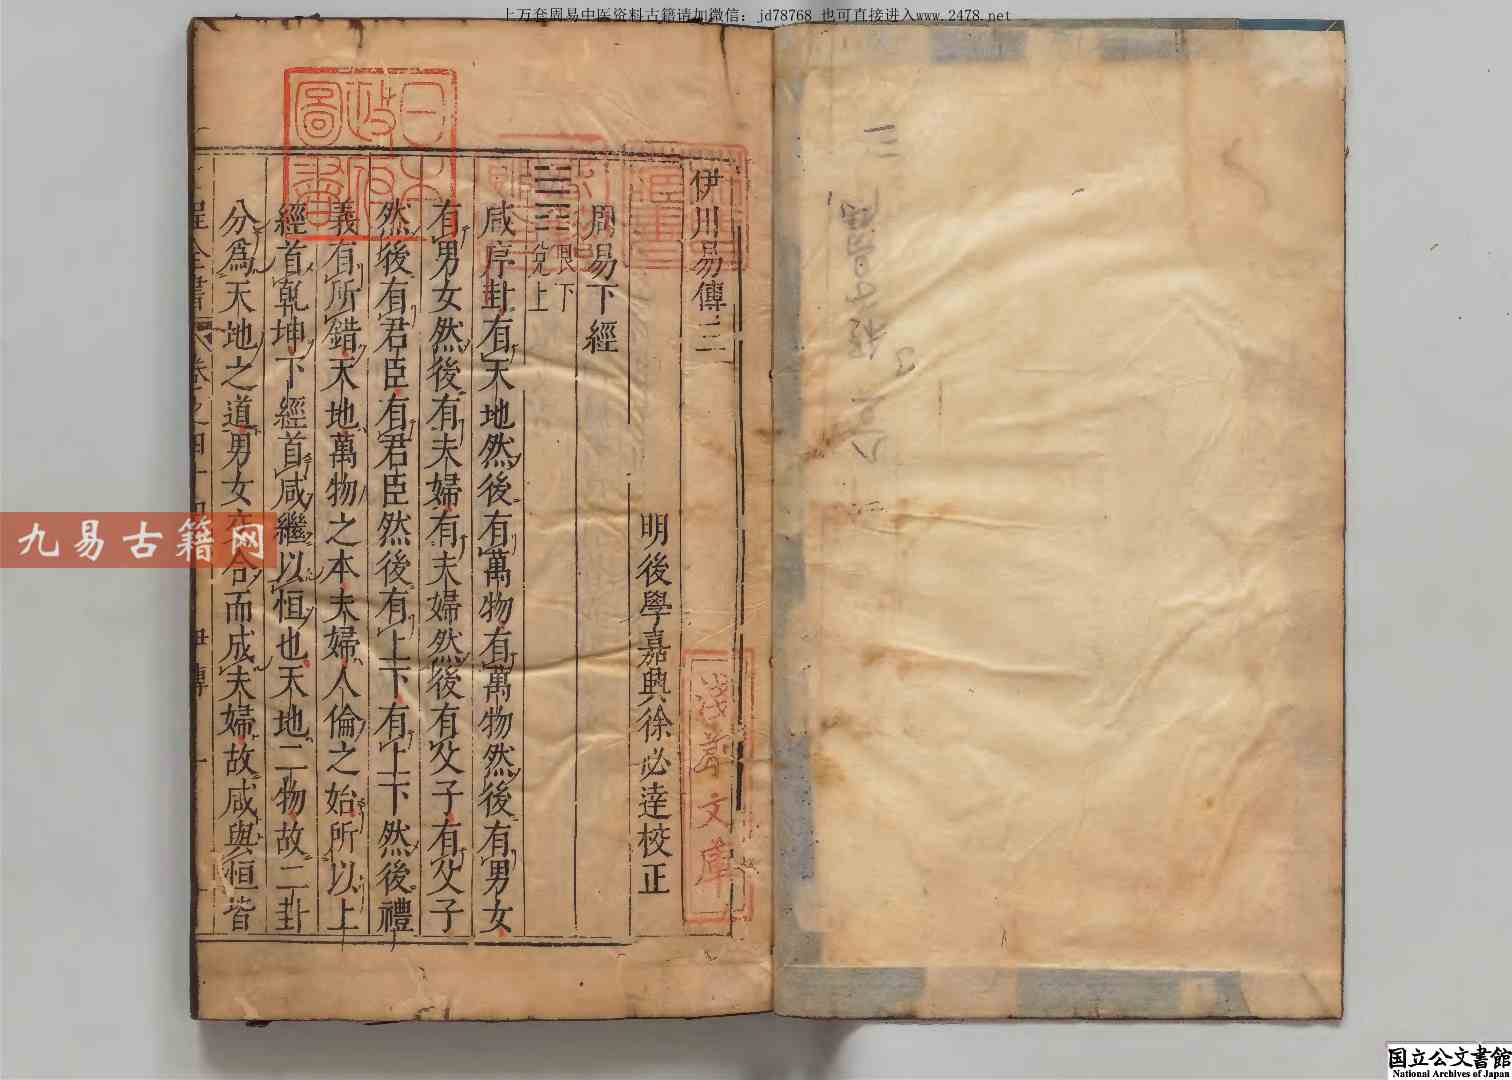 上万套周易中医资料古籍请加微信：jd78768 也可直接进入www.2478.net
伊川易傳三
明後學嘉興徐必達校正
周易下經
艮下
兌上
咸序卦有天地然後有萬物有萬物然後有男女
有男女然後有夫婦有夫婦然後有父子有父子
然後有君臣有君臣然後有上下有上下然後禮
義有所錯天地萬物之本夫婦人倫之始所以上
經首乾坤下經首咸繼以恒也天地二物故二卦
分爲天地之道男女交合而成夫婦故咸與恒皆
日本政府圖書
淺草文庫
九易古籍网
国立公文書館
National Archives of Japan